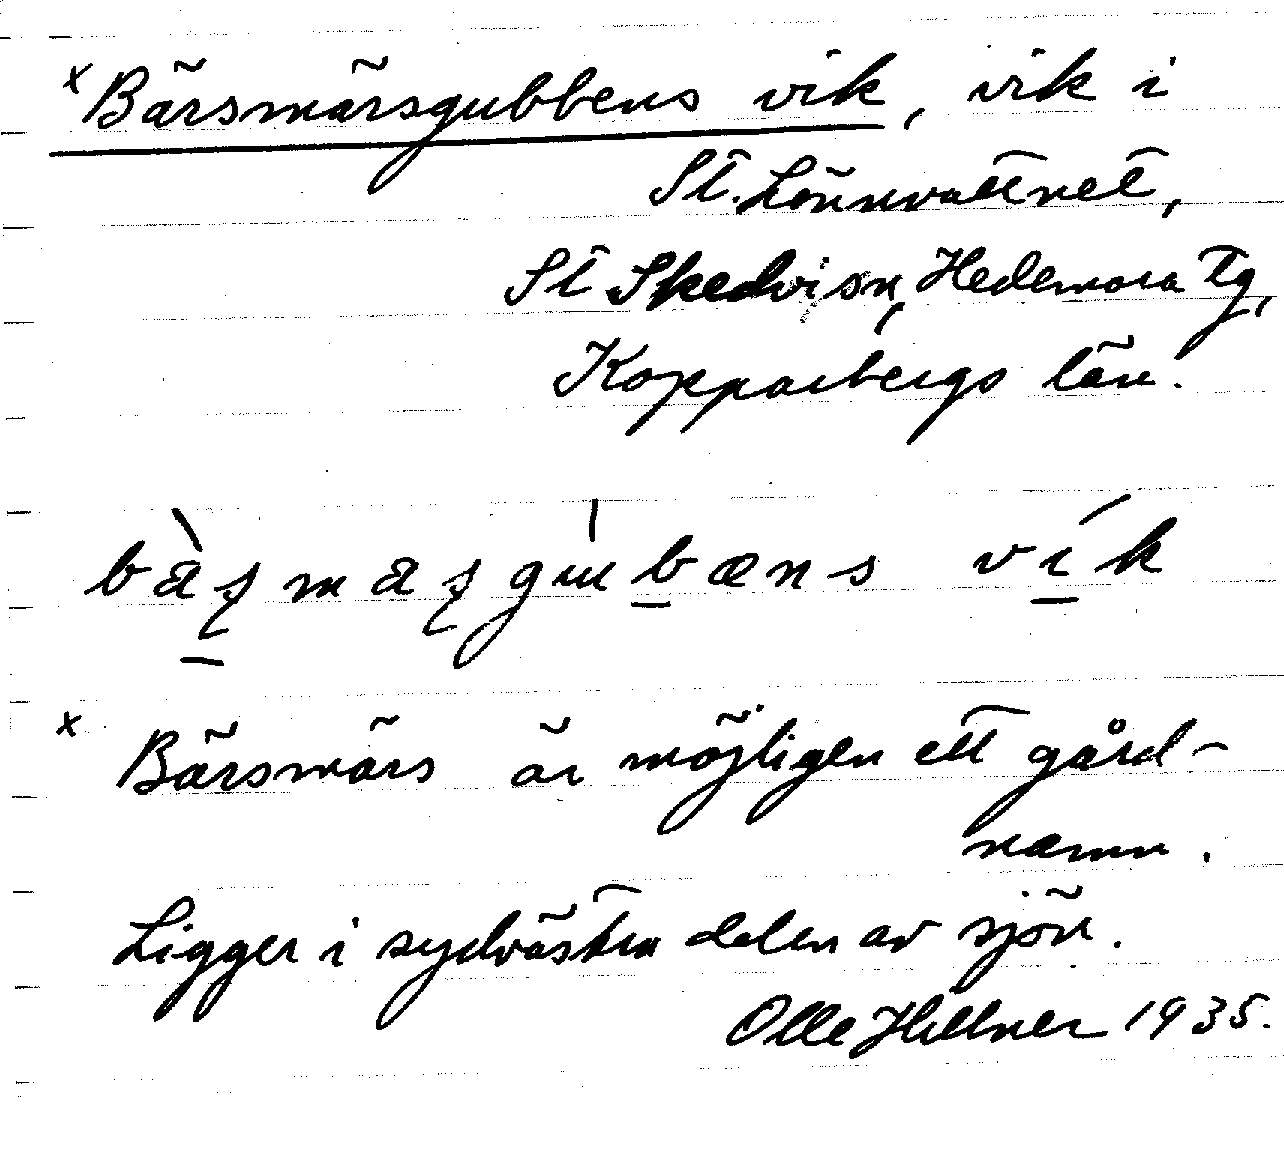 x Bärsmärsgubbens vik, vik i
St. Lönnvattnet,
St Skedvi sn, Hedemora Tg,
Kopparbergs län.
bàʂmaʂgubæns vík
x Bärsmärs är möjligen ett gård-
namn.
Ligger i sydvästra delen av sjön.
Olle Hillner 1935.